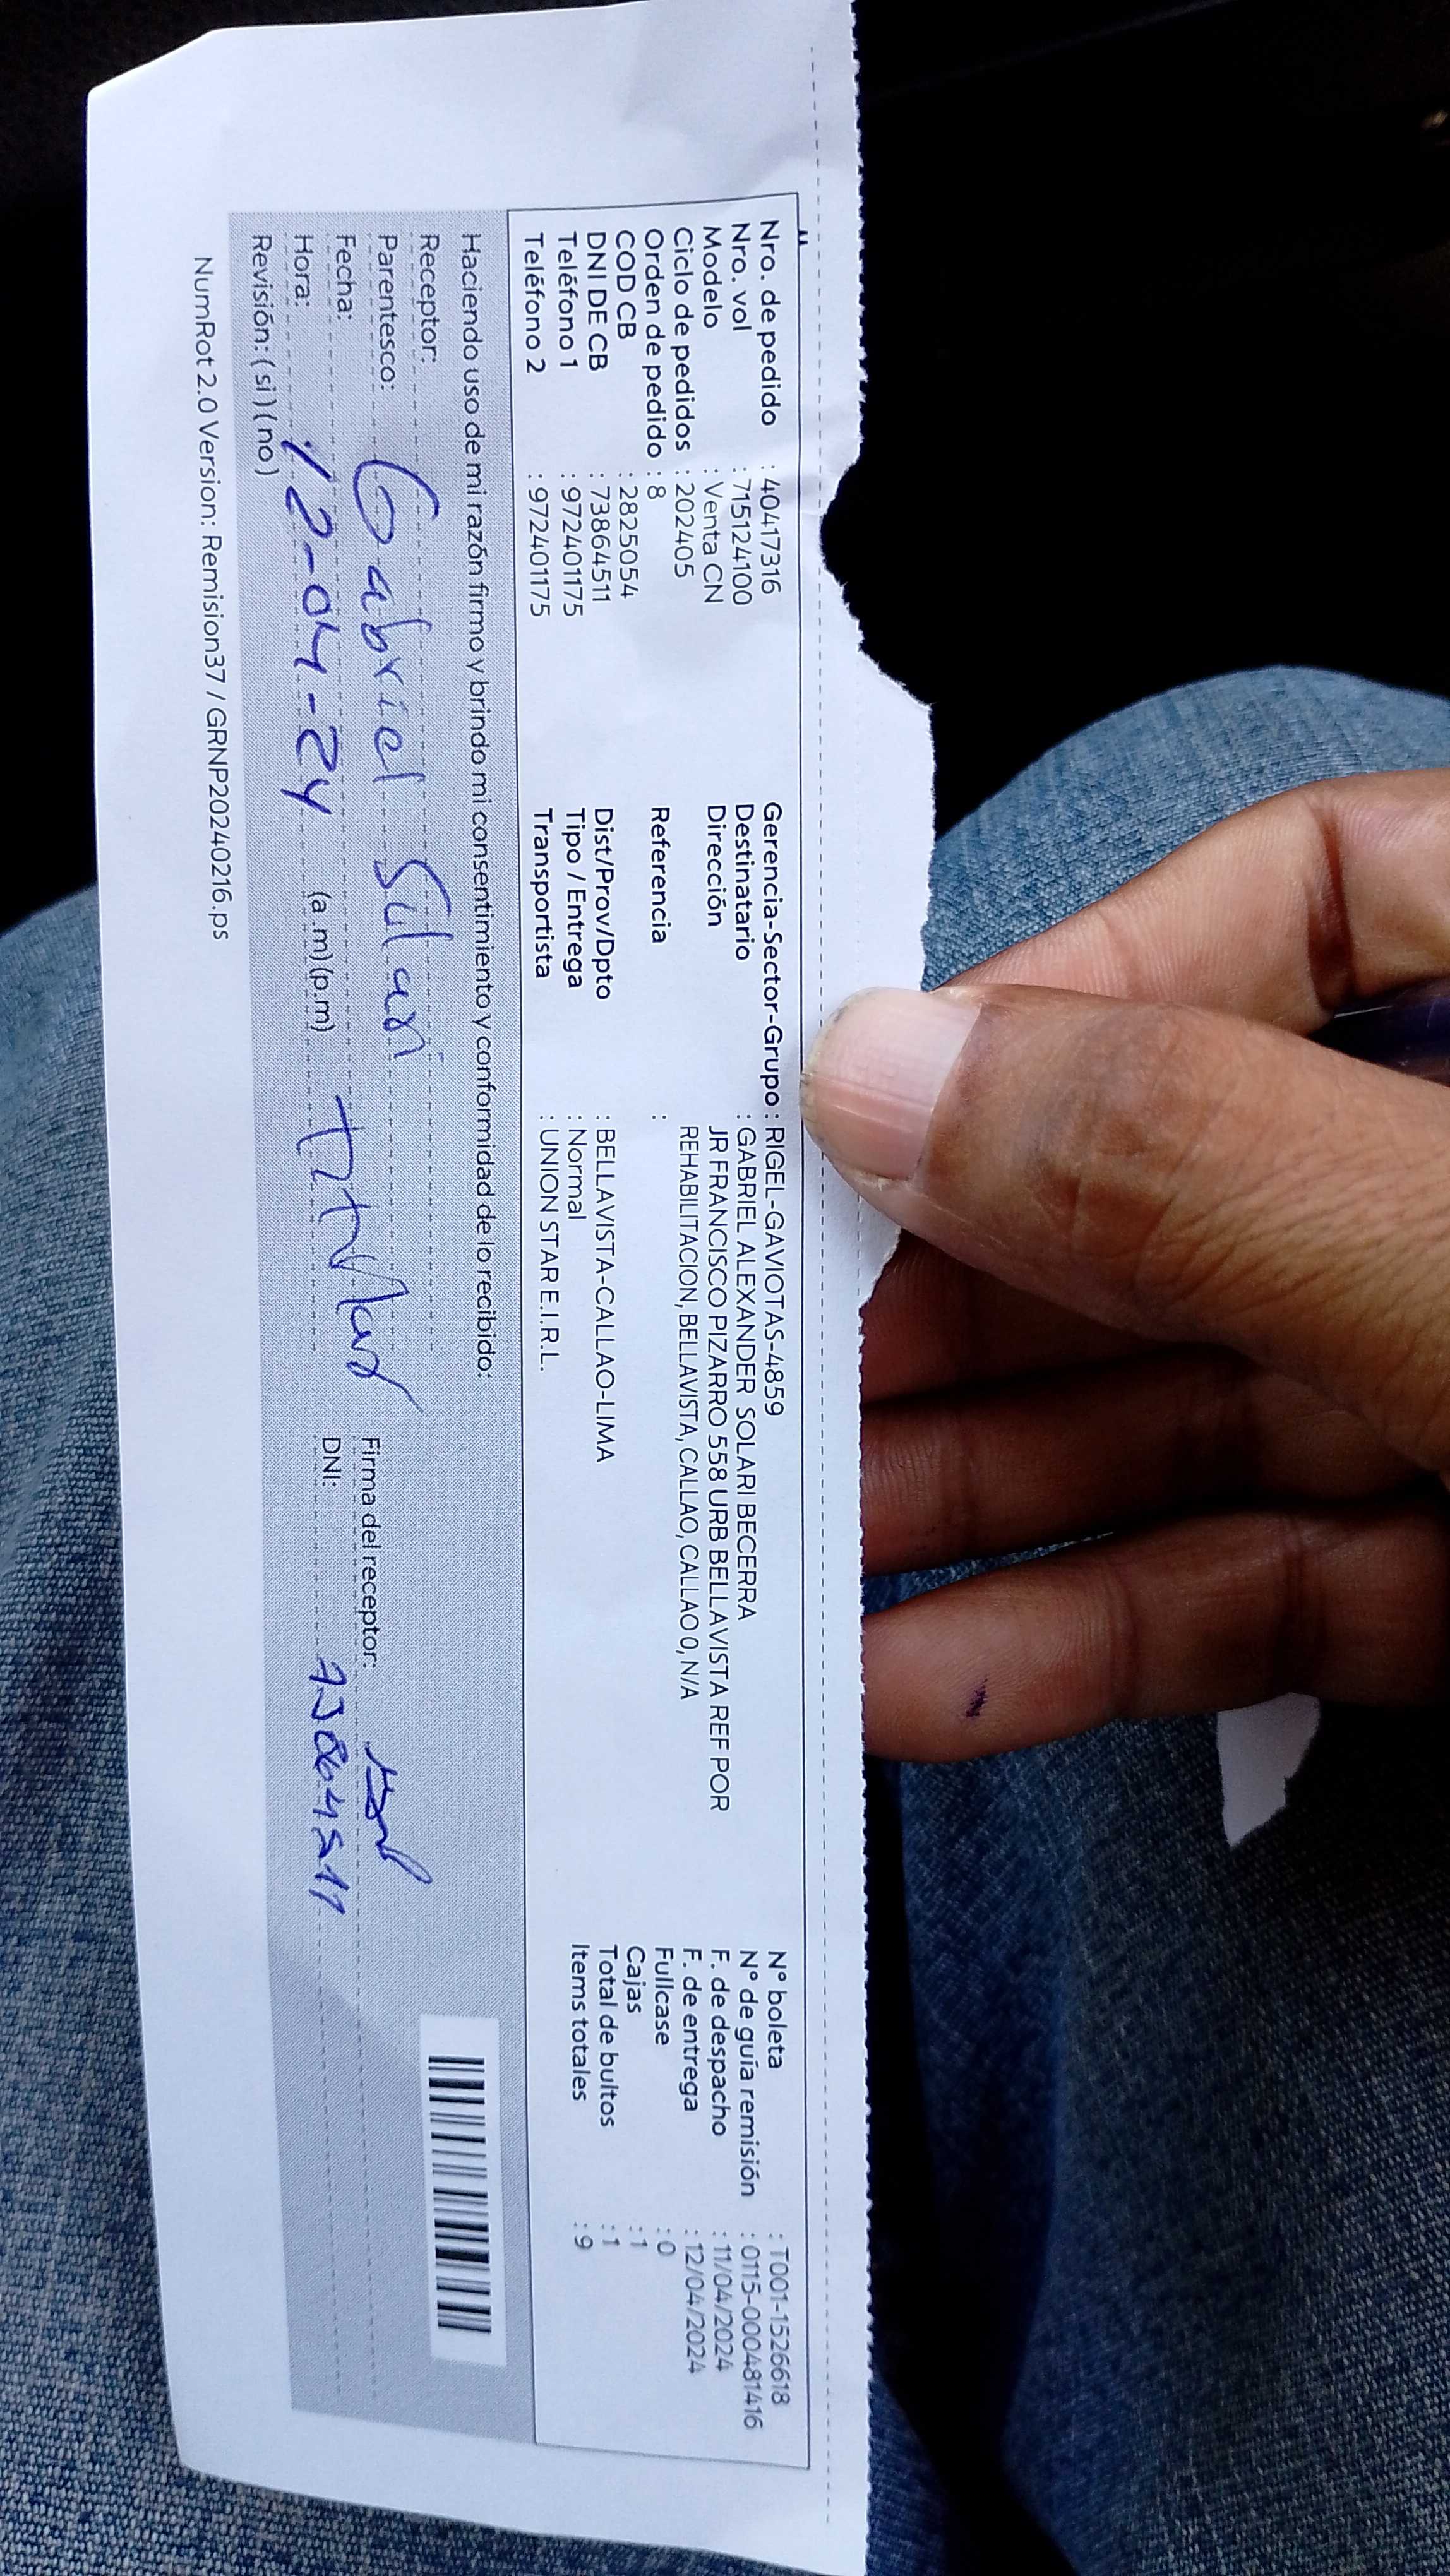 Nro. de pedido : 40417316 Gerencia-Sector-Grupo : RIGEL-GAVIOTAS-4859 N° boleta : T001-1526618
Nro. vol : 715124100 Destinatario : GABRIEL ALEXANDER SOLARI BECERRA N° de guía remisión : 0115-000481416
Modelo : Venta CN Dirección JR FRANCISCO PIZARRO 558 URB BELLAVISTA REF POR F. de despacho : 11/04/2024
Ciclo de pedidos : 202405 REHABILITACION, BELLAVISTA, CALLAO, CALLAO 0, N/A F. de entrega : 12/04/2024
Orden de pedido : 8 Referencia : Fullcase : 0
COD CB : 2825054 Cajas : 1
DNI DE CB : 73864511 Dist/Prov/Dpto : BELLAVISTA-CALLAO-LIMA Total de bultos : 1
Teléfono 1 : 972401175 Tipo / Entrega : Normal Items totales : 9
Teléfono 2 : 972401175 Transportista : UNION STAR E.I.R.L.
Haciendo uso de mi razón firmo y brindo mi consentimiento y conformidad de lo recibido:
Receptor: Gabriel Solari
Parentesco: Titular Firma del receptor:
Fecha: 12-04-24 DNI: 73864511
Hora: (a.m)(p.m)
Revisión: (si) (no)
NumRot 2.0 Version: Remision37 / GRNP20240216.ps